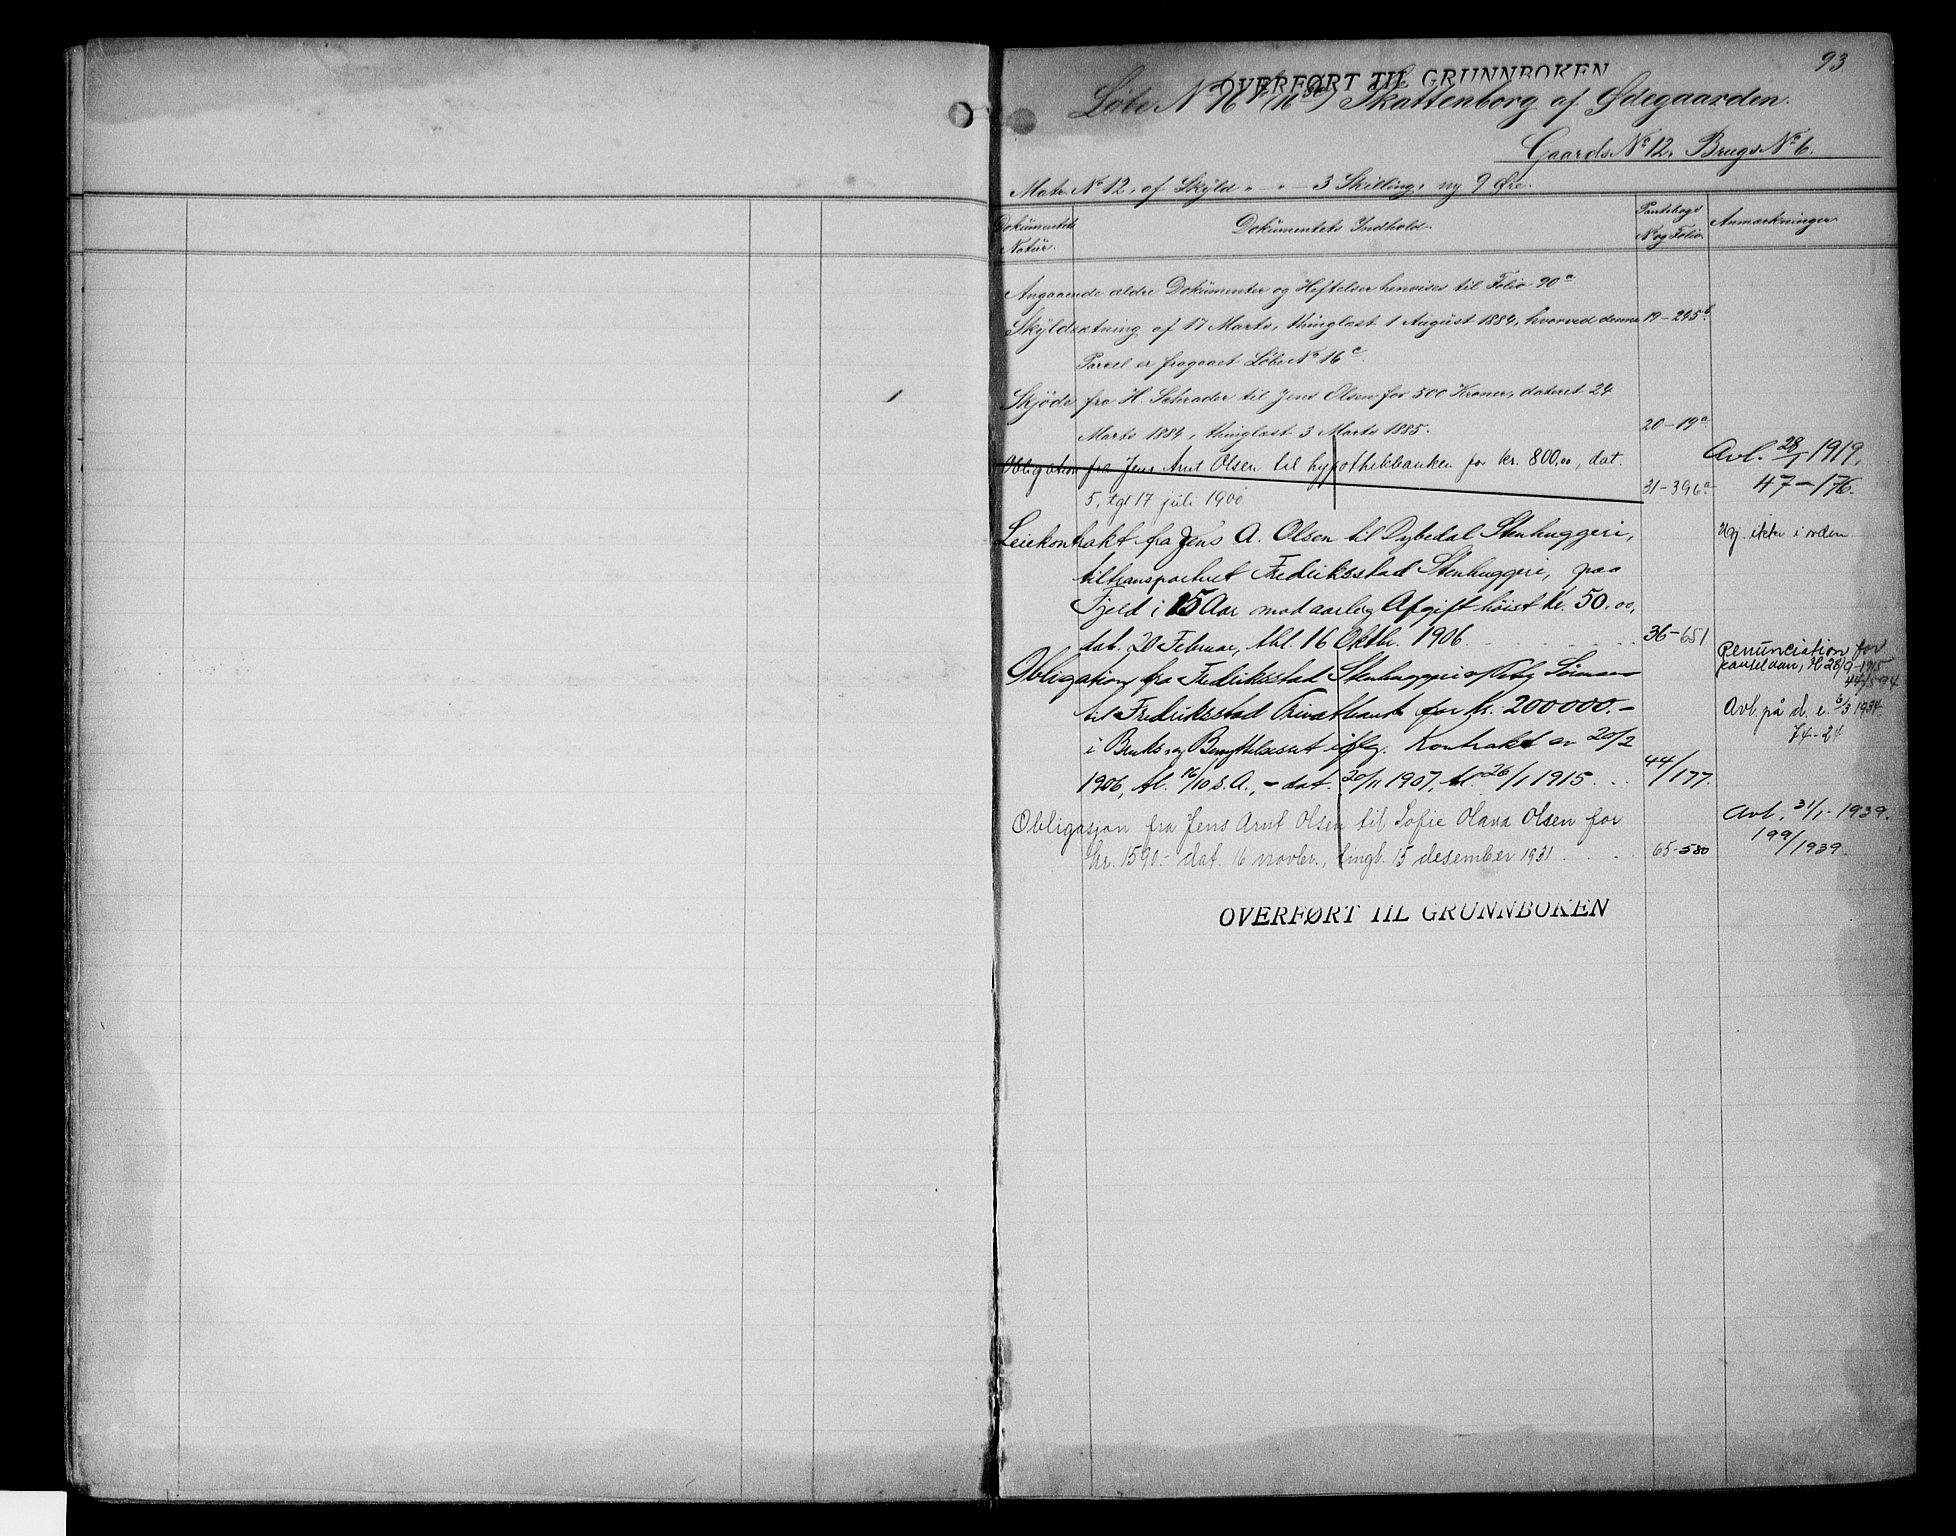 93
OVERFØRT TIL GRUNNBOKEN
Løbe N 16 Skattenborg af Ødegaarden.
Gaards No 12, Brugs No 6.
Matr. No 12, af Skyld „ - „ - 3 Skilling, ny 9 Øre.
Dokumentets Natur. Dokumentets Indhold. Pantebogs No og Folio. Anmærkninger
Angaaende ældre Dokumenter og Heftelser henvises til Folio 90 a
Skyldsætning af 17 Marts, thinglæst 1 August 1884, hvorved denne 19-245 b.
Parcel er fragaaet Løbe No 16 c.
Skjøde fra H. Schrader til Jens Olsen for 500 Kroner, dateret 24
Marts 1884, thinglæst 3 Marts 1885. 20-19 a.
Obligation fra Jens Arnt Olsen til hypothekbanken for kr. 800,00, dat. Avl. 28/1 1919.
5, tgl 17 juli 1900. 31-396 a. 47-176.
Leiekontrakt fra Jens A. Olsen til Dybedal Stenhuggeri, Utg. ikke i orden
tiltransporteret Fredriksstad Stenhuggeri, paa
Fjeld i 15 Aar mod aarlig Afgift høist Kr. 50.00,
dat. 20 Februar, thl. 16 Oktbr. 1906 36-651
Obligation fra Fredriksstad Stenhuggeri v/ Sörensen Renunciation for tl 28/9-1915
44/594
til Fredriksstad Privatbank for Kr. 200000.- Avl. på d. e. 6/3 1934
i Bruks og Benyttelsesret iflg. Kontrakt av 20/2 74-24
1906, tl. 16/10 s. A., - dat. 20/11 1907, tl. 26/1 1915 44/177.
Obligasjon fra Jens Arnt Olsen til Sofie Olava Olsen for Avl. 31/1-1939.
kr. 1590.- dat. 16 novbr., tingl. 15 desember 1931 65-580 199/1939
OVERFØRT TIL GRUNNBOKEN